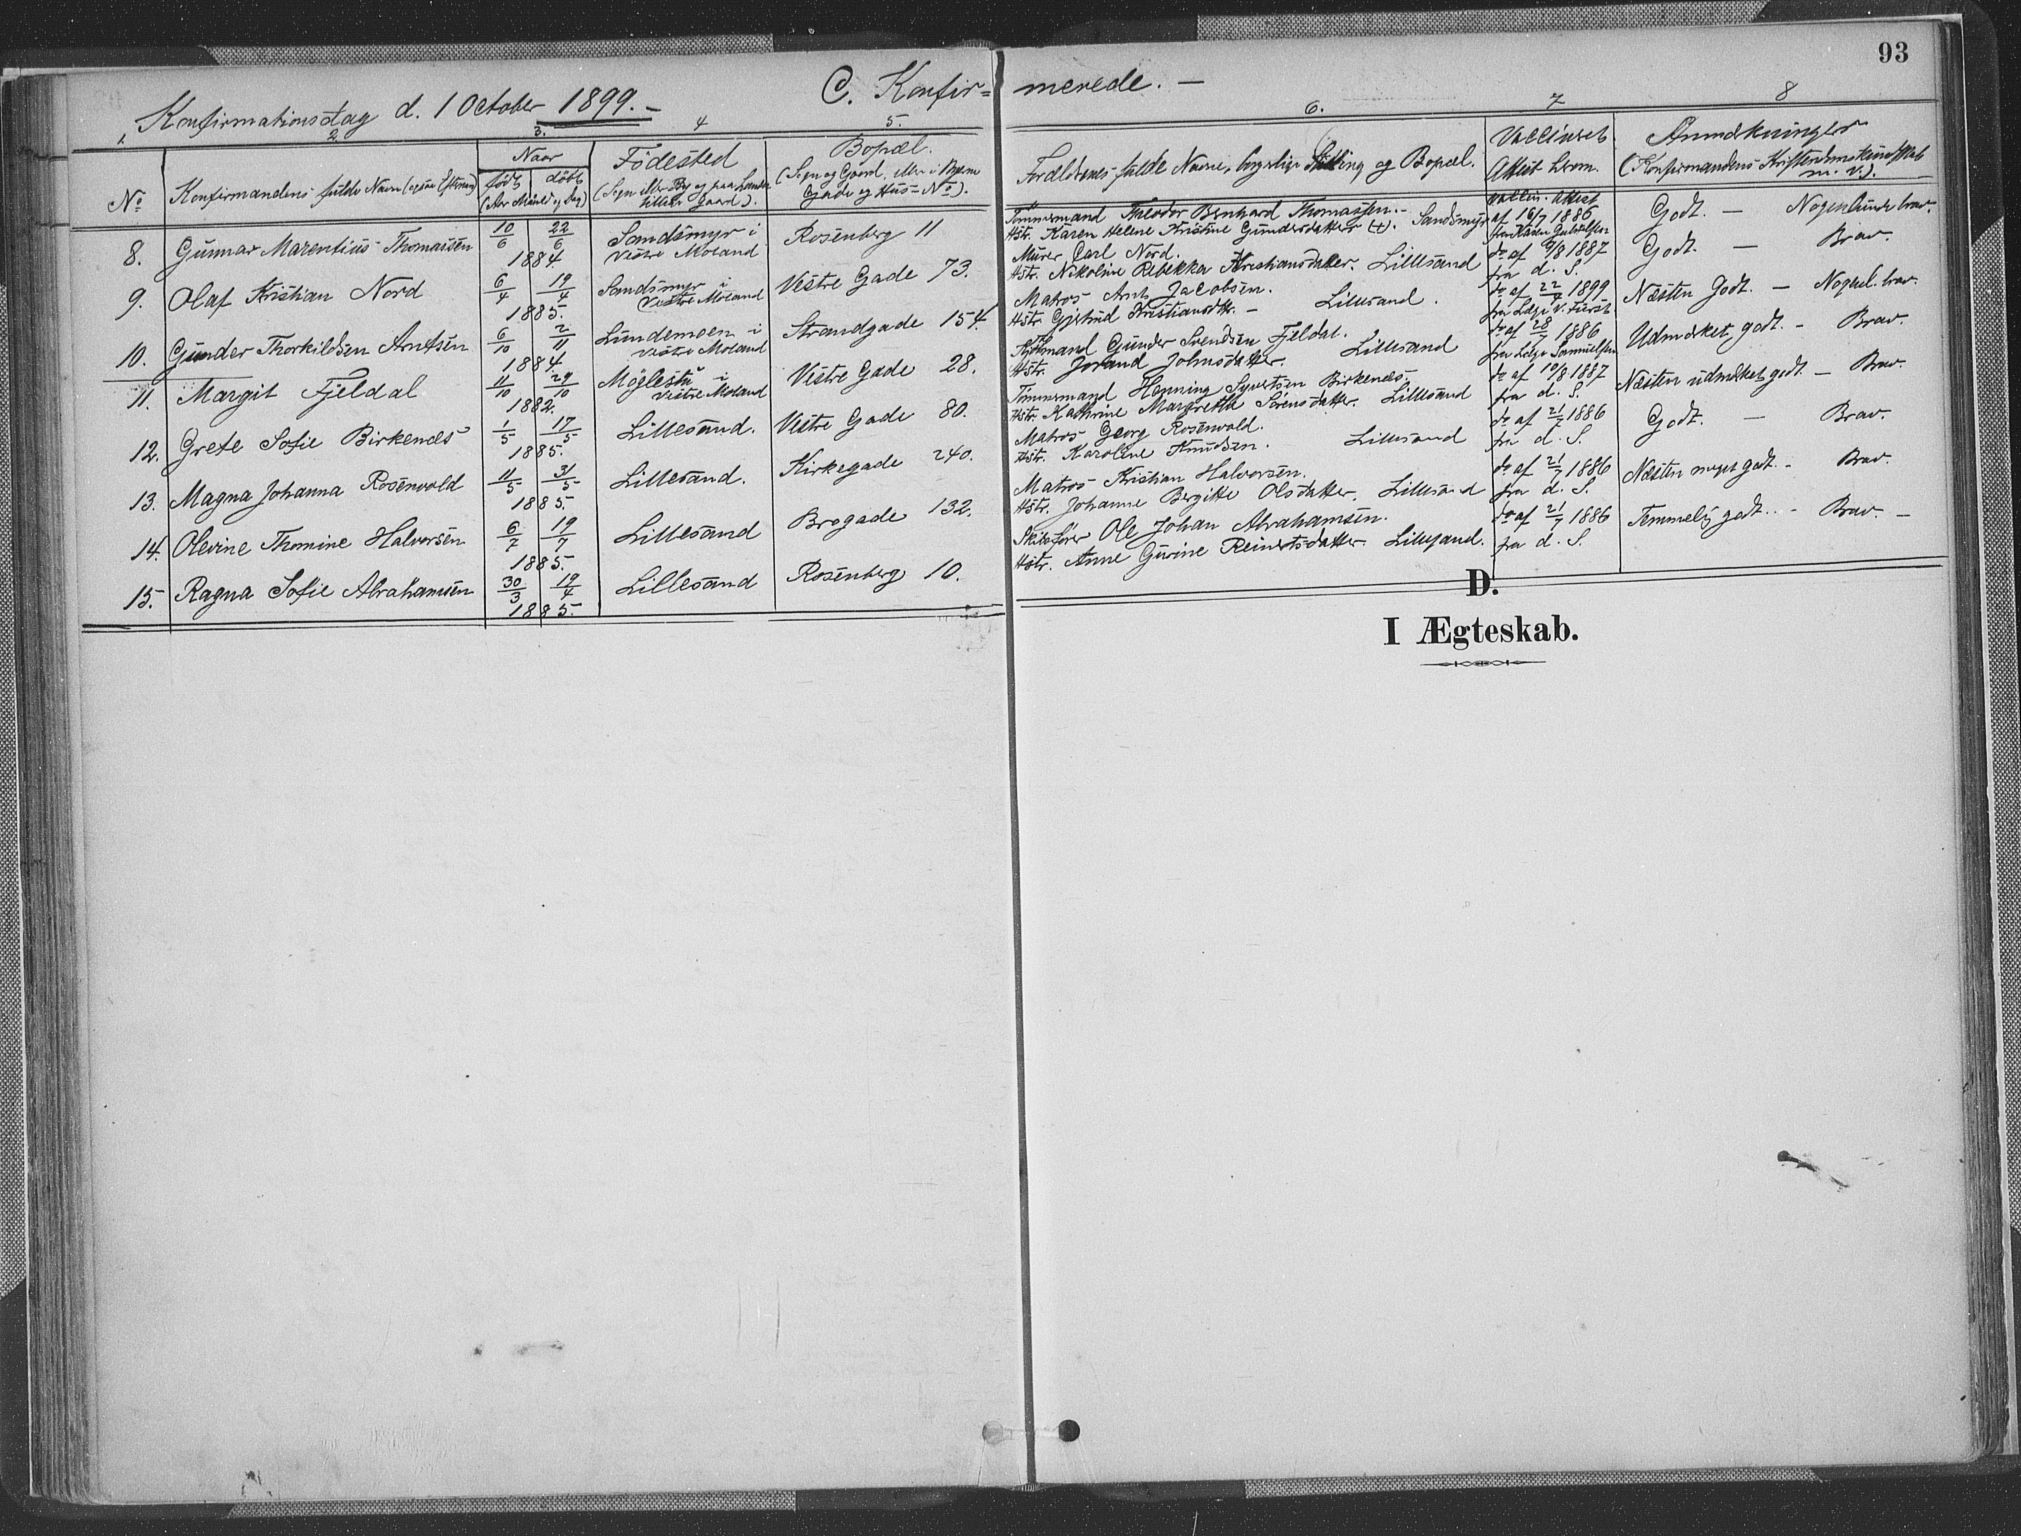 93
C. Konfir= merede. —
Konfirmationsdag d. 1 October 1899. —
1. 2. 3. 4 5. 6. 7 8
No
Konfirmandens fulde Navn (ogsaa Efternavn)
Naar
født døbt
(Aar Maaned og Dag)
Fødested
(Sogn eller By og paa Landet tillige Gaard).
Bopæl.
(Sogn og Gaard, eller i Byerne
Gade og Hus-No).
Forældrenes fulde Navne, borgerlige Stilling og Bopæl.
Vaccinset
Attest hvorn.
Anmærkninger
(Konfirmandens Kristendomskundskab
m. v.).
8. Gunnar Marentius Thomassen 10/6 22/6 1884 Sandsmyr i Vestre Moland Rosenberg 11
Tømmermand Theodor Bernhard Thomassen. — Sandsmyr
Hstr. Karen Helene Kristine Gundersdatter (+).
Vaccin. Attest
af 16/7 1886
Godt. — Nogenlunde brav.
9. Olaf Kristian Nord 6/4 19/4 1885. Sandsmyr i Vestre Moland Vestre Gade 73.
Murer Carl Nord.
Hstr. Nikoline Rebekka Kristiansdatter. Lillesand
do af 9/8 1887
fra d. S.
Godt. — Brav.
10. Gunder Thorkildsen Arntsen 6/10 2/11 1884 Lundemoen i Vestre Moland Strandgade 154.
Matros Arnt Jacobsen.
Hstr. Gjertrud Kristiansdtr. — Lillesand.
do af 22/4 1899
Næsten Godt. — Nogenl. brav.
11. Margit Fjeldal 11/10 29/10 1882. Møglestu i Vestre Moland Vestre Gade 28.
Kjøbmand Gunder Svendsen Fjeldal.
Hstr. Jorand Johnsdatter. Lillesand
do af 28/7 1886
Udmærket godt. — Brav.
12. Grete Sofie Birkenes 1/5 17/5 1885. Lillesand. Vestre Gade 80.
Tømmermand Henning Syvertsen Birkenes
Hstr. Kathrine Margrethe Sørensdatter. Lillesand
do af 10/8 1887
fra d. S.
Næsten udmærket godt — Brav.
13. Magna Johanna Rosenvold 11/5 31/5 1885. Lillesand. Kirkegade 240.
Matros Georg Rosenvold.
Hstr. Karoline Knudsen. Lillesand
do af 21/7 1886
fra d. S.
Godt. — Brav.
14. Olevine Thomine Halvorsen 6/7 19/7 1885. Lillesand Brogade 132.
Matros Kristian Halvorsen.
Hstr. Johanne Bergitte Olsdatter. Lillesand
do af 21/7 1886
fra d. S.
Næsten meget godt. — Brav.
15. Ragna Sofie Abrahamsen 30/3 19/4 1885. Lillesand Rosenberg 10.
Skibsfører Ole Johan Abrahamsen.
Hstr. Anne Gurine Reinertsdatter. Lillesand.
do af 21/7 1886
fra d. S.
Temmelig godt. — Brav. —
D.
I Ægteskab.